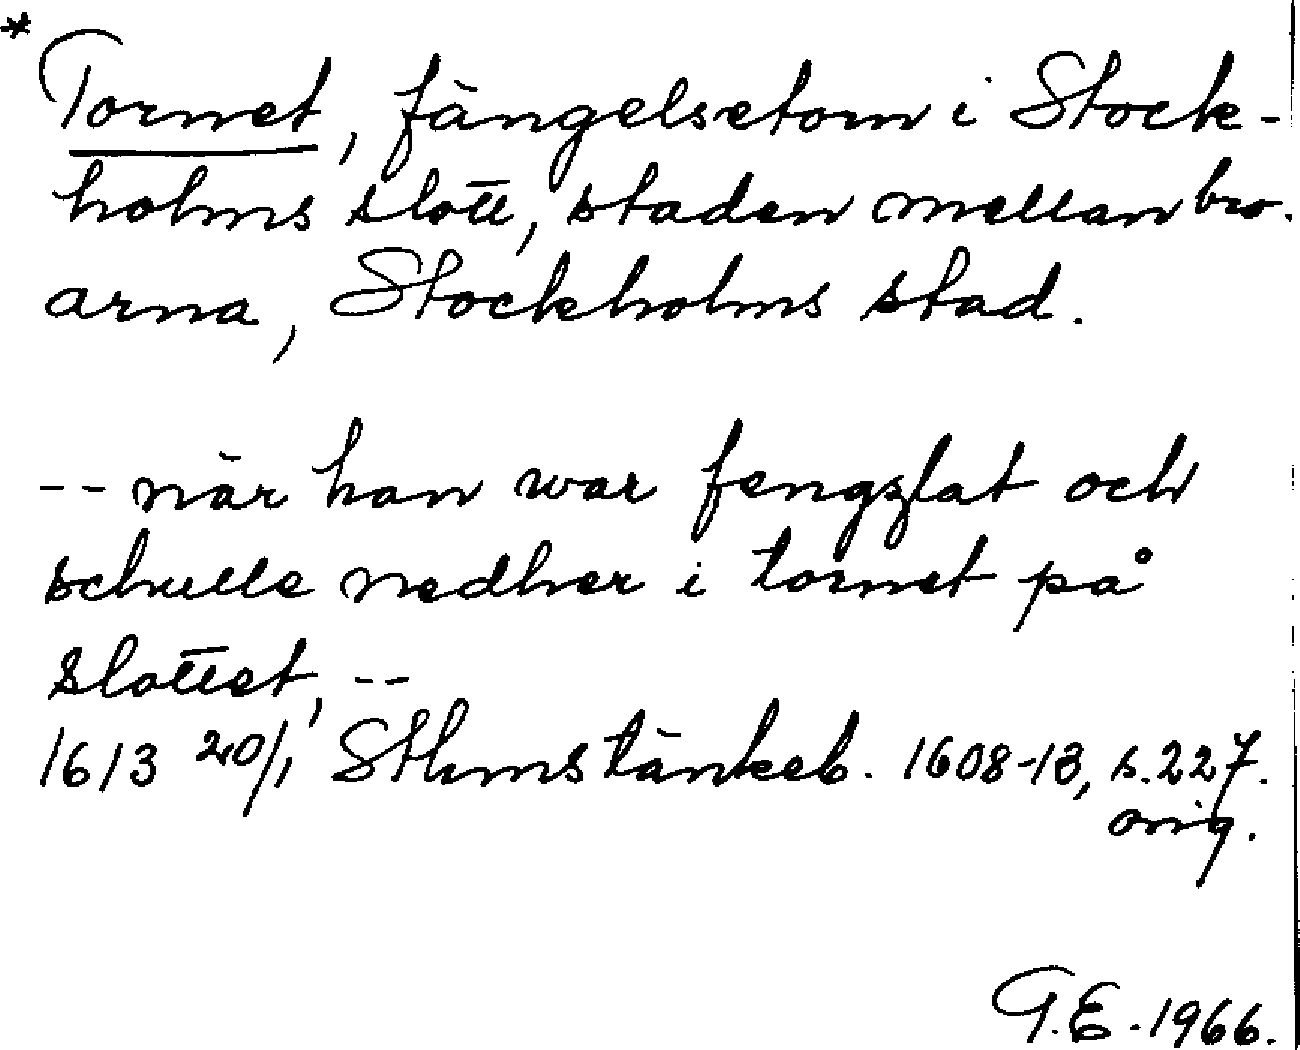 *
Tornet, fängelsetorn i Stock-
holms slott, staden mellan bro-
arna, Stockholms stad.
-- när han war fengzlat och
schulle nedher i tornet på
slottet, --
1613 20/1 Sthms tänkeb. 1608-13, s. 227.
orig.
G.E. 1966.